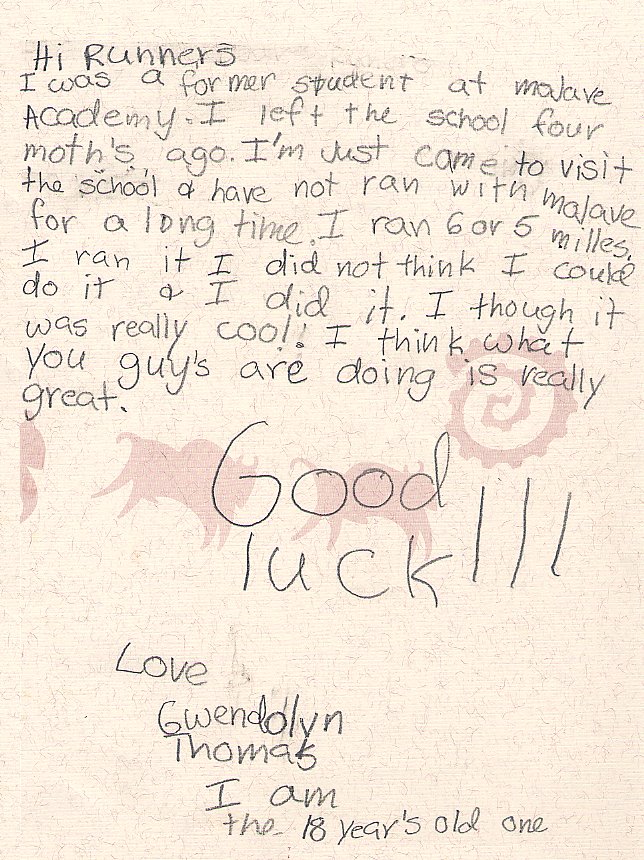 Hi Runners
I was a former student at mojave
Academy. I left the school four
moth's ago. I'm Just came to visit
the school & have not ran with mojave
for a long time. I ran 6 or 5 milles.
I ran it I did not think I could
do it & I did it. I though it
was really cool! I think what
you guy's are doing is really
great.
Good
luck!!!
Love
Gwendolyn
Thomas
I am
the 18 year's old one